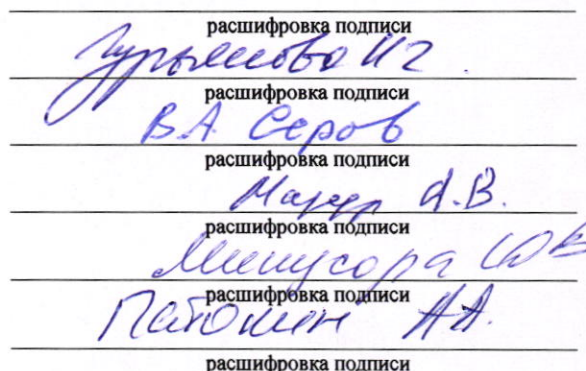 расшифровка подписи
Гурьянова И Г.
расшифровка подписи
В.А. Серов
расшифровка подписи
А.В.
расшифровка подписи
расшифровка подписи
А.А.
расшифровка подписи